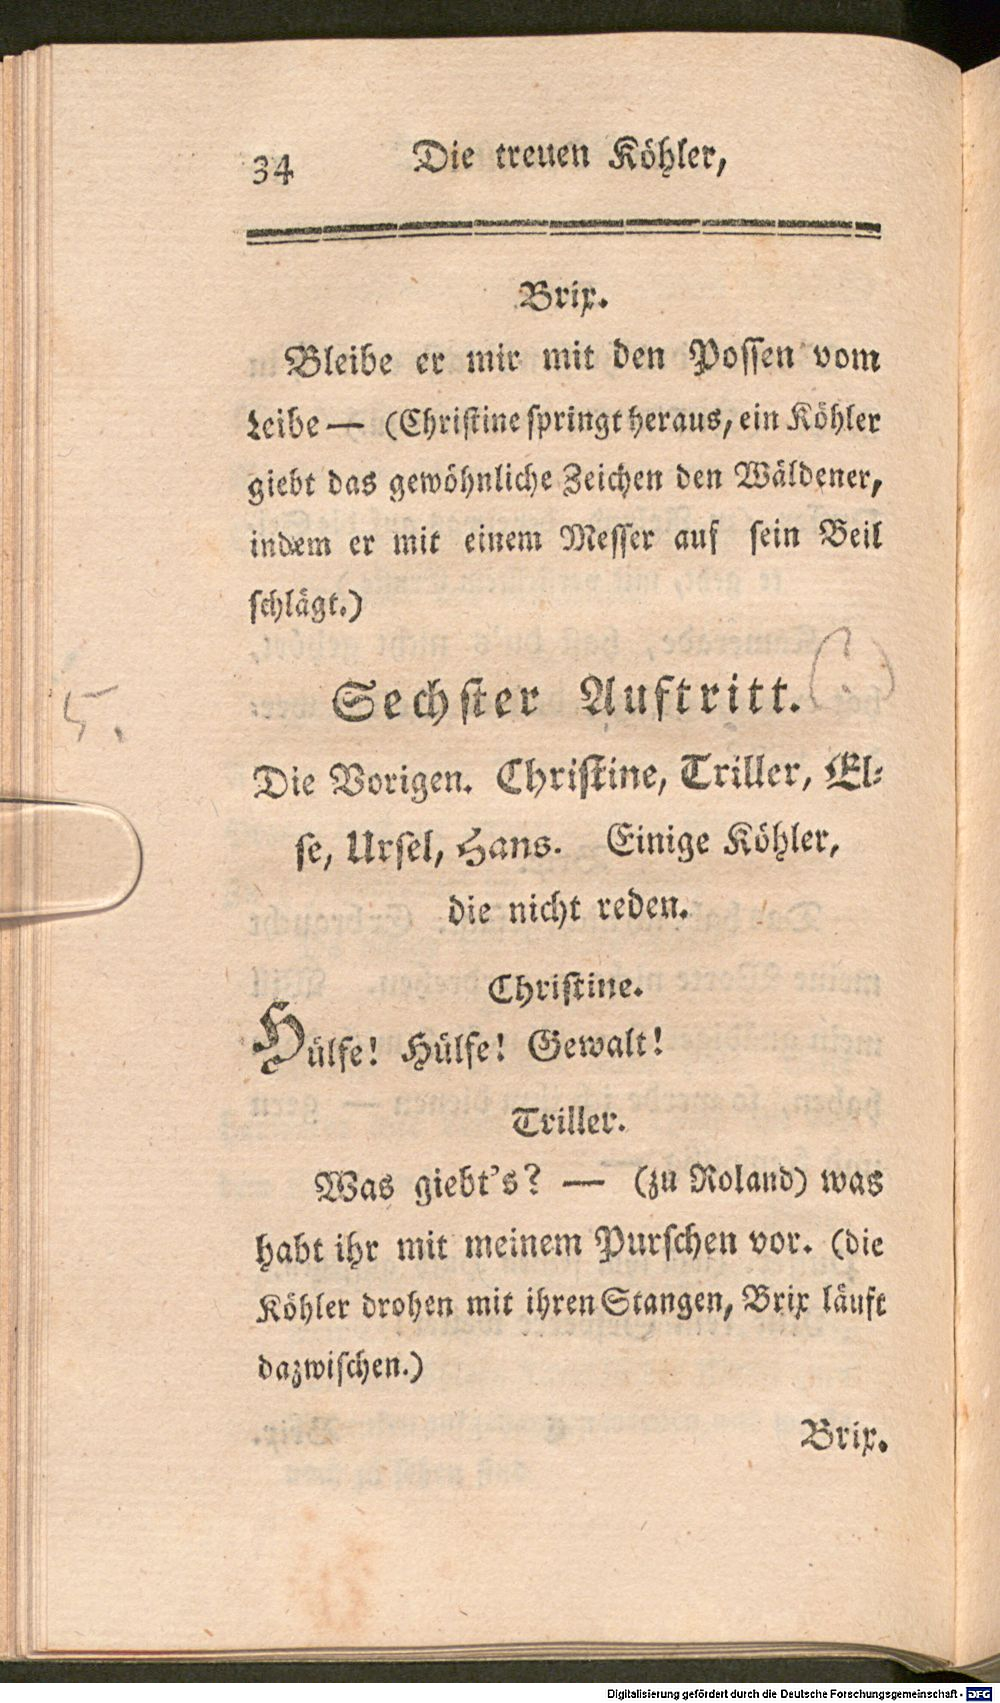 34 Die treuen Köhler,
Brix.
Bleibe er mir mit den Possen vom
Leibe — (Christine springt heraus, ein Köhler
giebt das gewöhnliche Zeichen den Wäldener,
indem er mit einem Messer auf sein Beil
schlägt.)
5.
Sechster Auftritt.
Die Vorigen. Christine, Triller, El-
se, Ursel, Hans. Einige Köhler,
die nicht reden.
Christine.
Hülfe! Hülfe! Gewalt!
Triller.
Was giebt's? — (zu Roland) was
habt ihr mit meinem Purschen vor. (die
Köhler drohen mit ihren Stangen, Brix läuft
dazwischen.)
Brix.
Digitalisierung gefördert durch die Deutsche Forschungsgemeinschaft - DFG